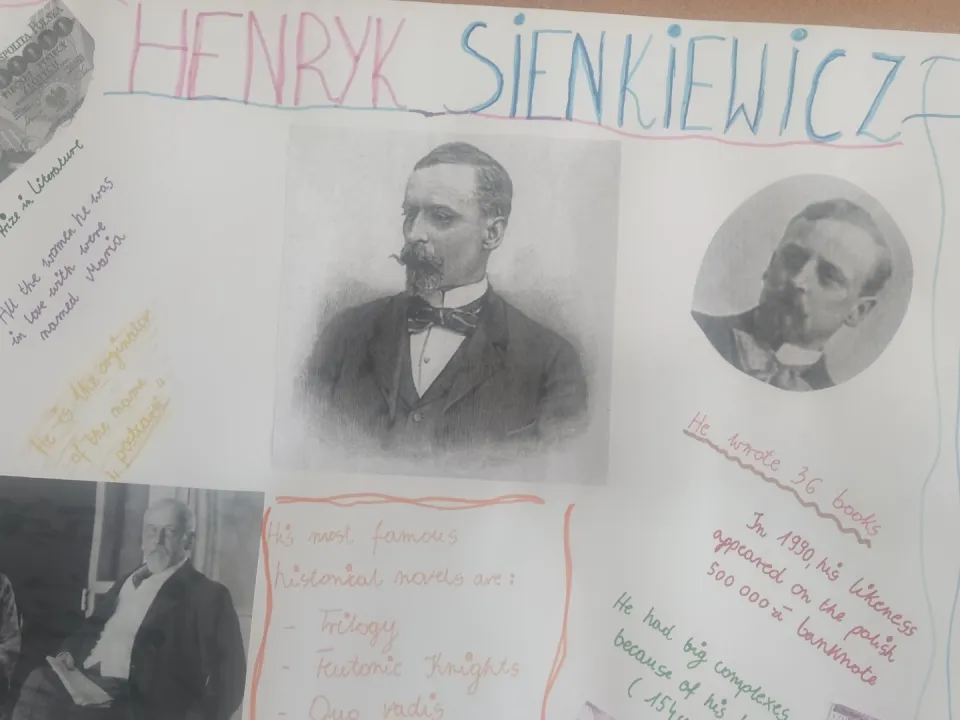 HENRYK SIENKIEWICZ
Prize in Literature
All the women he was
in love with were
named Maria
He is the originator
of the name
"postcard"
His most famous
historical novels are:
- Trilogy
- Teutonic Knights
- Quo vadis
He wrote 36 books
In 1990, his likeness
appeared on the polish
500 000 zł banknote
He had big complexes
because of his